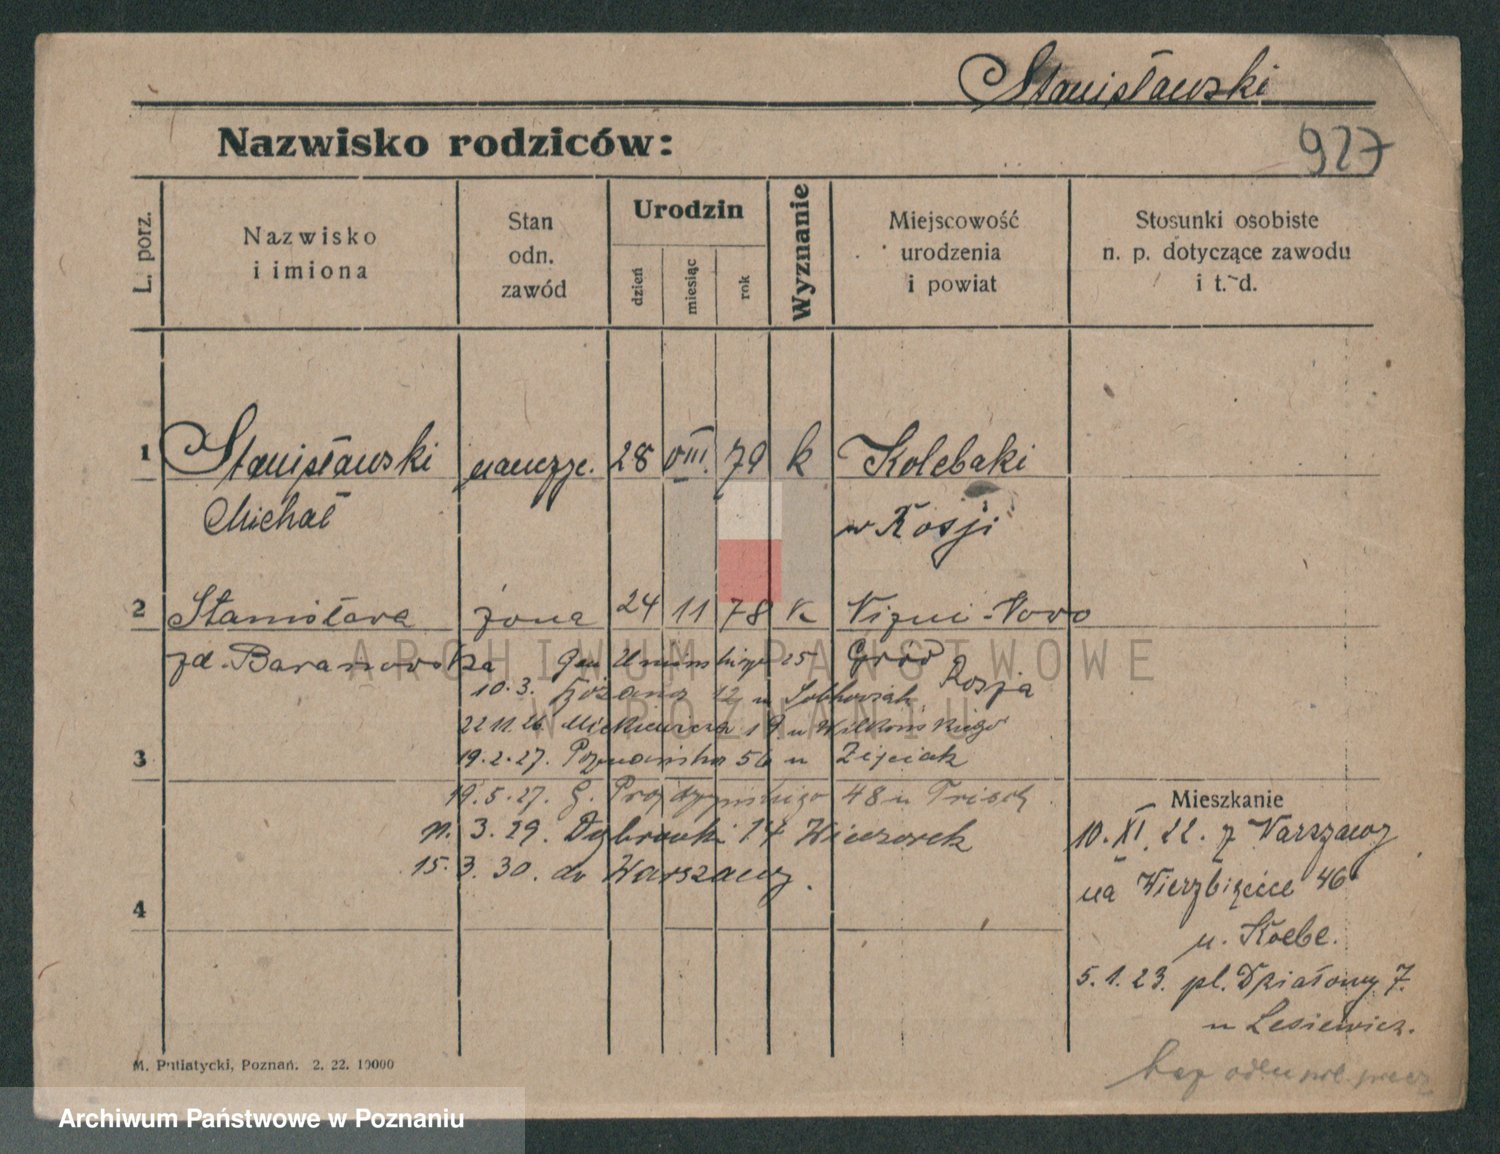 Stanisławski
Nazwisko rodziców:
927
L. porz.
Nazwisko
i imiona
Stan
odn.
zawód
Urodzin
dzień
miesiąc
rok
Wyznanie
Miejscowość
urodzenia
i powiat
Stosunki osobiste
n. p. dotyczące zawodu
i t. d.
1 Stanisławski 28 VIII. 79 k Kolebaki
Michał w Rosji
2 Stanisława żona 24 11 78 k Nowo
zd. Baranowska Gród Rosja
10.3. 12 u
22.11.26 Mickiewicza 19 u Wilkońskiego
3 19.2.27. Poznańska 56 u Zięciak
19.5.27. G. 48 u
3. 29. Dąbrówki 14 Wieczorek
15.3.30. do Warszawy.
4
Mieszkanie
10. XI. 22. z Warszawy
na Wierzbięcice 46
u. Koebe.
5.1.23. pl. Działowy 7.
u Lesiewicz.
M. Putiatycki, Poznań. 2. 22. 10000
ARCHIWUM PAŃSTWOWE
W POZNANIU
Archiwum Państwowe w Poznaniu